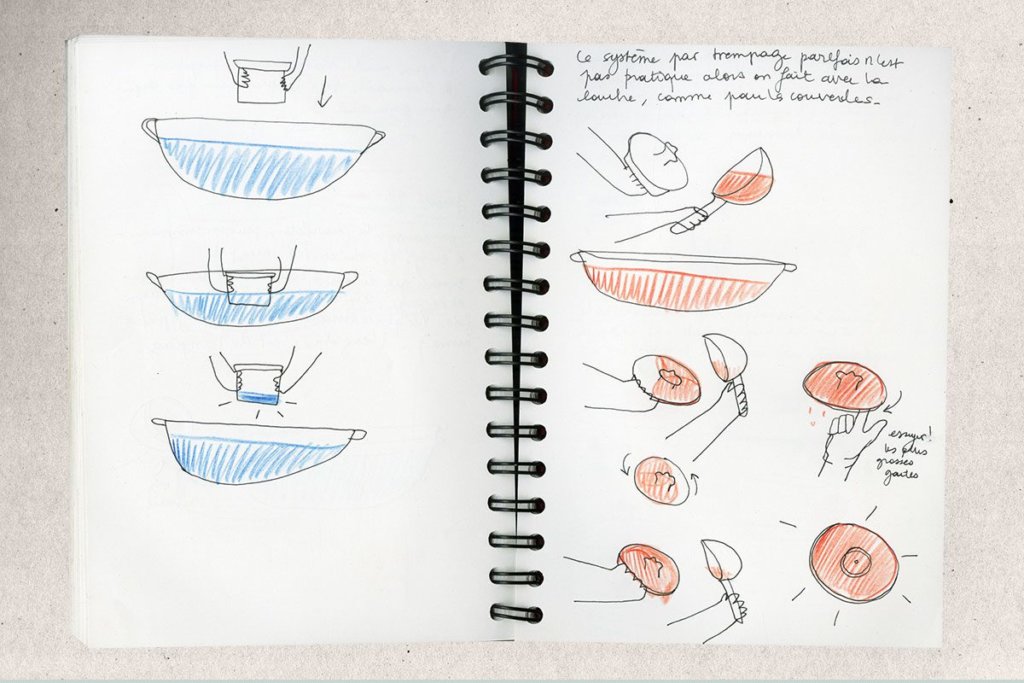 Ce système par trempage parfois n'est
pas pratique alors on fait avec la
louche, comme pour les couvercles.
essuyer!
les plus
grosses
goutes